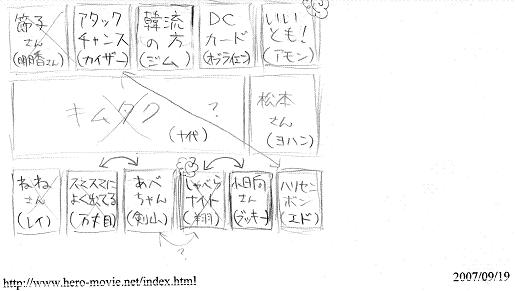 節子
さん
(明日香さん)
アタック
チャンス
(カイザー)
韓流
の方
(ジム)
DC
カード
(オブライエン)
いい
とも!
(アモン)
キムタク
?
(十代)
松本
さん
(ヨハン)
ねね
さん
(レイ)
スマスマに
よく出てる
(万丈目)
あべ
ちゃん
(剣山)
しゃべら
ナイト
(翔)
小日向
さん
(ヅッキー)
ハリセン
ボン
(エド)
?
http://www.hero-movie.net/index.html
2007/09/19